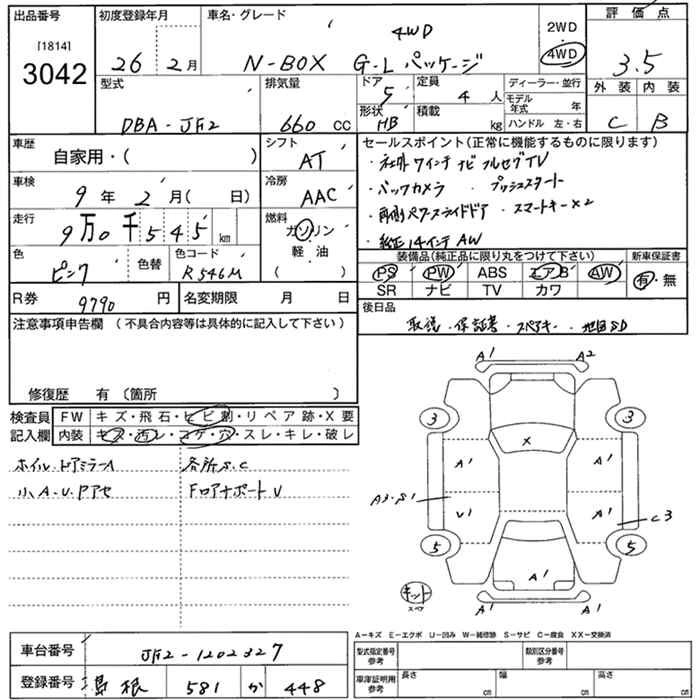 出品番号 初度登録年月 車名・グレード 4WD 2WD 評価点
[1814] 4WD
3042 26 2月 N-BOX G-L パッケージ 3.5
型式 排気量 ドア 5 定員 4 人 ディーラー・並行 外装 内装
形状 HB 積載 kg モデル年式 年
DBA-JF2 660 cc ハンドル 左・右 C B
車歴 自家用・( ) シフト AT セールスポイント(正常に機能するものに限ります)
・社外7インチナビ フルセグTV
車検 9年 2月( 日) 冷房 AAC ・バックカメラ ・プッシュスタート
走行 9万0千545 km 燃料 ガソリン 軽油 ( ) ・両側パワースライドドア ・スマートキー×2
・純正14インチAW
色 ピンク 色替 色コード R546M 装備品(純正品に限り丸をつけて下さい) 新車保証書
PS PW ABS エアB AW 有・無
SR ナビ TV カワ
R券 9790 円 名変期限 月 日 後日品
注意事項申告欄 (不具合内容等は具体的に記入して下さい) 取説・保証書・スペアキー・地図SD
修復歴 有 (箇所 )
検査員 FW キズ・飛石・ヒビ割・リペア跡・X要
記入欄 内装 キズ・汚レ・コゲ・穴・スレ・キレ・破レ
ホイル・ドアミラーA 各所S.C
小A・U・Pアセ FロアナポートV
A1 A2
3 3
X
A1 A1
A3・S1 U1 A1 C3
5 5
キット スペア A1
A1 A1
A-キズ E-エクボ U-凹み W-補修跡 S-サビ C-腐食 XX-交換済
車台番号 JF2-1202327 型式指定番号 参考 類別区分番号 参考
登録番号 島根 581 か 448 車庫証明用 参考 長さ cm 幅 cm 高さ cm